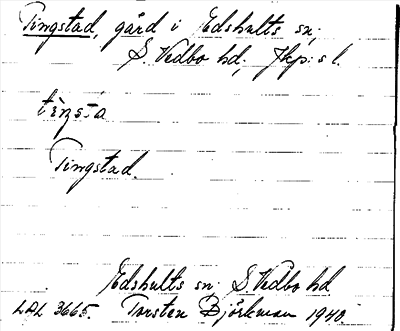 Tingstad, gård i Edshults sn;
S. Vedbo hd; Jkp:s l.
Tingstad.
Edshults sn S. Vedbo hd
LAL 3665. Torsten Björkman 1940